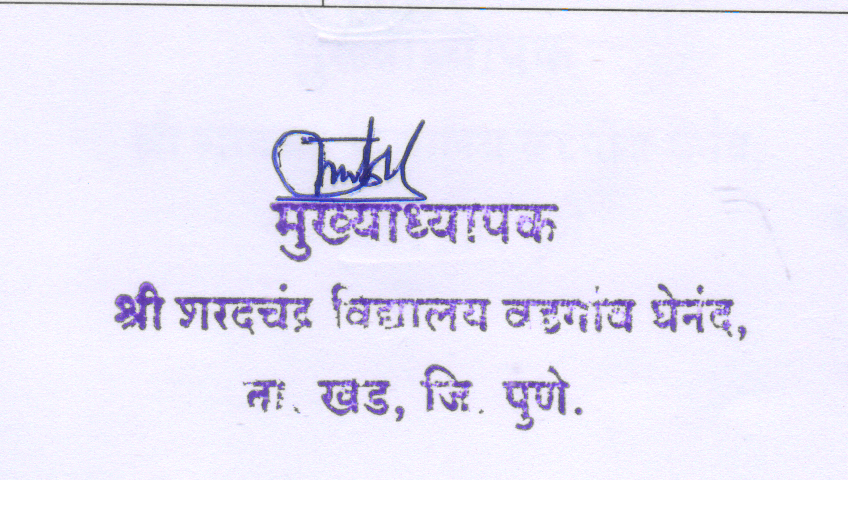 मुख्याध्यापक
श्री शरदचंद्र विद्यालय वडगांव घेनंद,
ता. खेड, जि. पुणे.